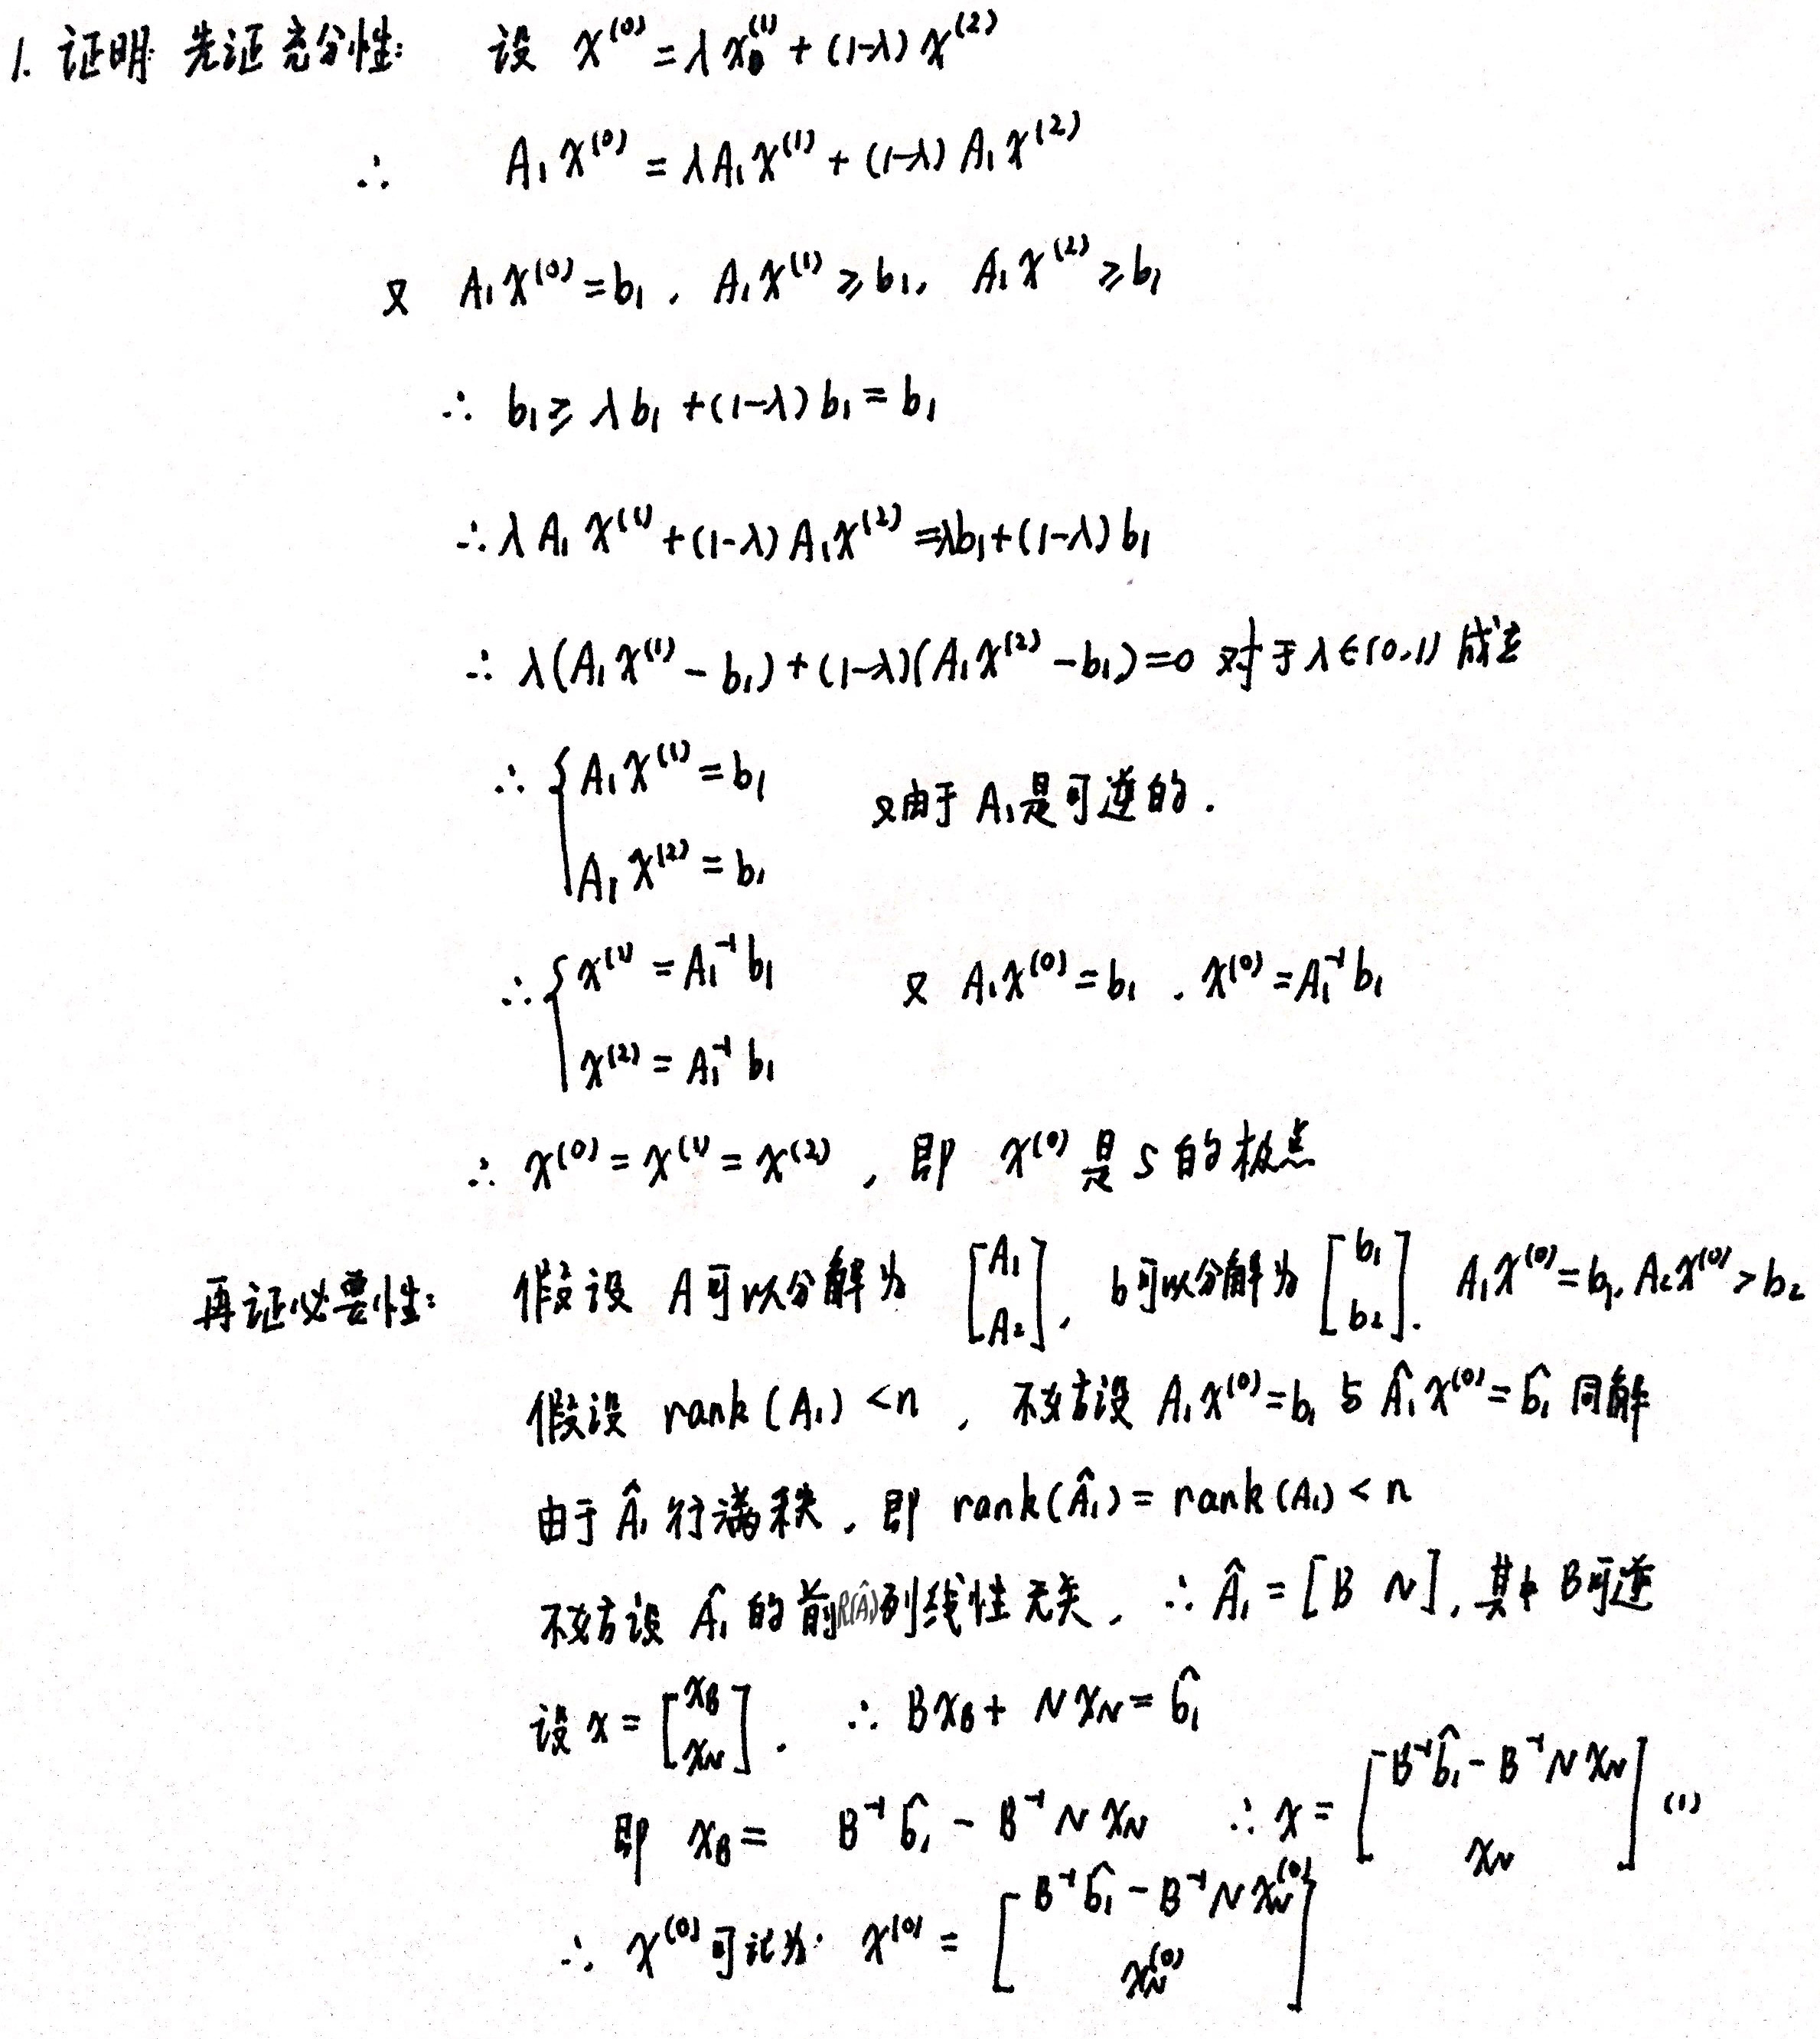 1. 证明: 先证充分性: 设 x^(0) = λx^(1) + (1-λ)x^(2)
∴ A₁x^(0) = λA₁x^(1) + (1-λ)A₁x^(2)
又 A₁x^(0) = b₁, A₁x^(1) ≥ b₁, A₁x^(2) ≥ b₁
∴ b₁ ≥ λb₁ + (1-λ)b₁ = b₁
∴ λA₁x^(1) + (1-λ)A₁x^(2) = λb₁ + (1-λ)b₁
∴ λ(A₁x^(1) - b₁) + (1-λ)(A₁x^(2) - b₁) = 0 对于 λ∈(0,1) 成立
∴ { A₁x^(1) = b₁ 又由于 A₁是可逆的.
A₁x^(2) = b₁
∴ { x^(1) = A₁⁻¹b₁ 又 A₁x^(0) = b₁, x^(0) = A₁⁻¹b₁
x^(2) = A₁⁻¹b₁
∴ x^(0) = x^(1) = x^(2), 即 x^(0) 是 S 的极点
再证必要性: 假设 A可以分解为 [A₁ A₂], b可以分解为 [b₁ b₂]. A₁x^(0) = b₁, A₂x^(0) > b₂
假设 rank(A₁) < n, 不妨设 A₁x^(0) = b₁ 与 Â₁x^(0) = b̂₁ 同解
由于 Â₁ 行满秩, 即 rank(Â₁) = rank(A₁) < n
不妨设 Â₁ 的前R(Â₁)列线性无关, ∴ Â₁ = [B N], 其中 B可逆
设 x = [x_B x_N]. ∴ Bx_B + Nx_N = b̂₁
即 x_B = B⁻¹b̂₁ - B⁻¹Nx_N ∴ x = [B⁻¹b̂₁ - B⁻¹Nx_N x_N] (1)
∴ x^(0) 可记为: x^(0) = [B⁻¹b̂₁ - B⁻¹Nx_N^(0) x_N^(0)]